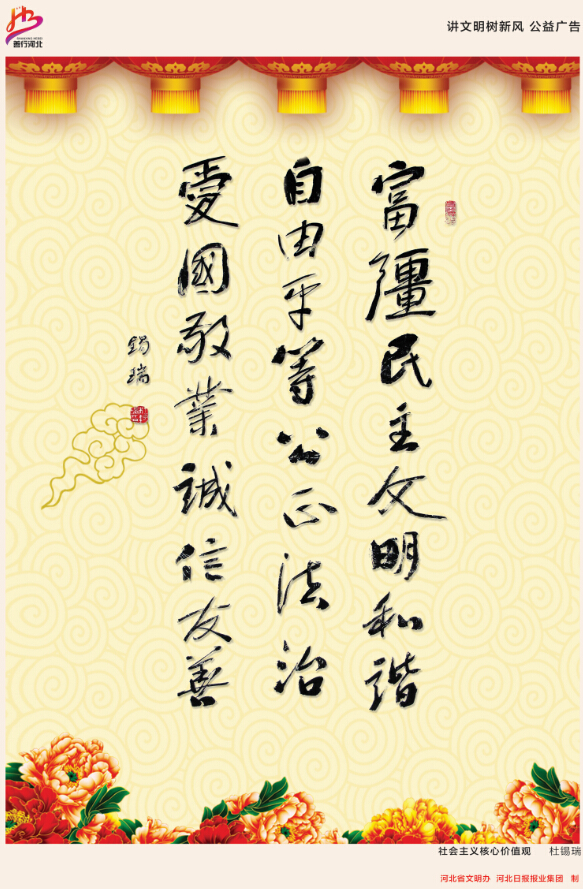 善行河北
讲文明树新风 公益广告
富彊民主文明和諧
自由平等公正法治
愛國敬業誠信友善
錫瑞
社会主义核心价值观 杜锡瑞
河北省文明办 河北日报报业集团 制